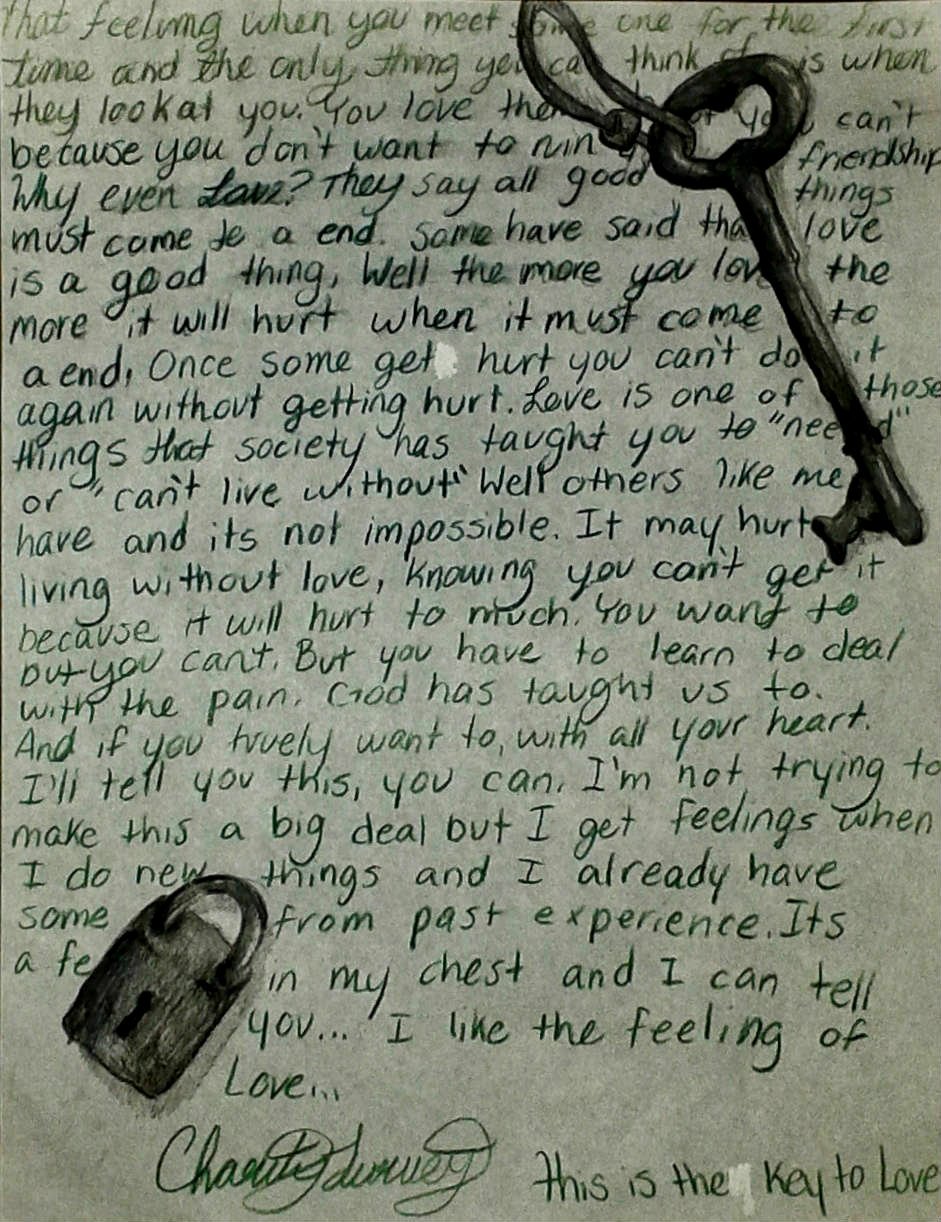 That feeling when you meet some one for the first
time and the only thing you can think of is when
they look at you. You love them but you can't
because you don't want to ruin friendship
Why even Love? They say all good things
must come to a end. Some have said that love
is a good thing, Well the more you love the
more it will hurt when it must come to
a end. Once some get hurt you can't do it
again without getting hurt. Love is one of those
things that society has taught you to "need"
or "can't live without" Well others like me
have and its not impossible. It may hurt
living without love, knowing you can't get it
because it will hurt to much. You want to
but you can't. But you have to learn to deal
with the pain. God has taught us to.
And if you truely want to, with all your heart.
I'll tell you this, you can. I'm not trying to
make this a big deal but I get feelings when
I do new things and I already have
some from past experience. Its
a fe in my chest and I can tell
you... I like the feeling of
Love...
Charity
This is the Key to Love